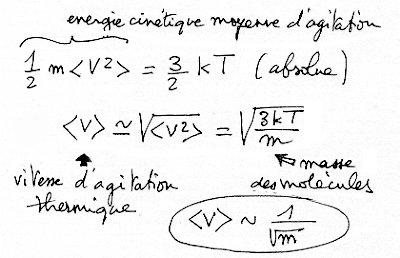 energie cinétique moyenne d'agitation
1/2 m <V²> = 3/2 kT (absolue)
<V> ≃ √<V²> = √(3kT/m)
vitesse d'agitation thermique
masse des molécules
<V> ~ 1/√m